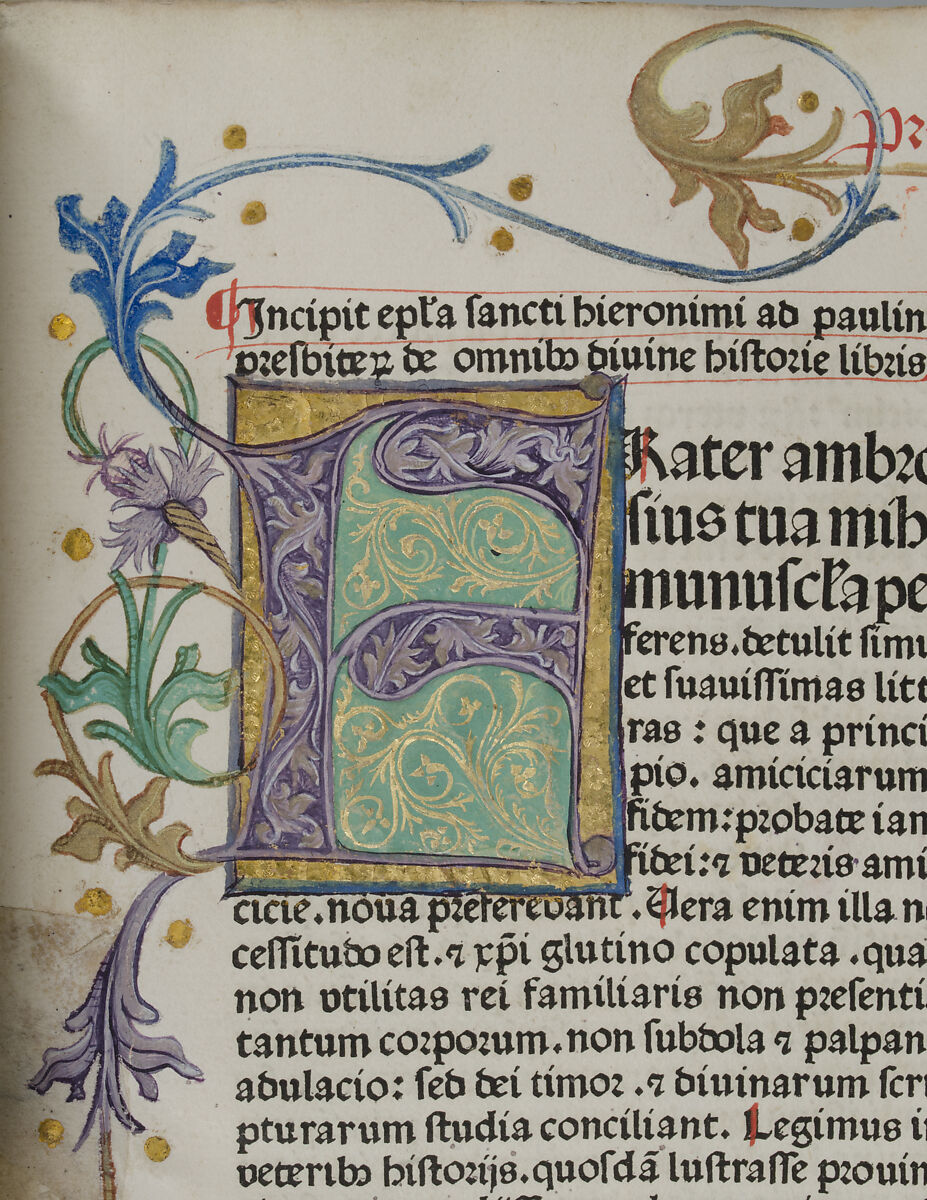 Pr
Incipit ep̄ła ſancti hieronimi ad paulin
preſbiteꝝ de omnibꝰ diuine hiſtorie libris
F
Rater ambro
ſius tua mih
munuſcła pe
ferens. detulit ſimu
et ſuauiſſimas litt
ras : que a princi
pio. amiciciarum
fidem: probate iam
fidei: ⁊ veteris ami
cicie. noua preferebant. Vera enim illa n
ceſſitudo eſt. ⁊ xp̄i glutino copulata. qua
non vtilitas rei familiaris non preſenti
tantum corporum. non ſubdola ⁊ palpan
adulacio: ſed dei timor. ⁊ diuinarum ſcri
pturarum ſtudia conciliant. Legimus i
veteribꝰ hiſtorijs. quoſdã luſtraſſe prouin